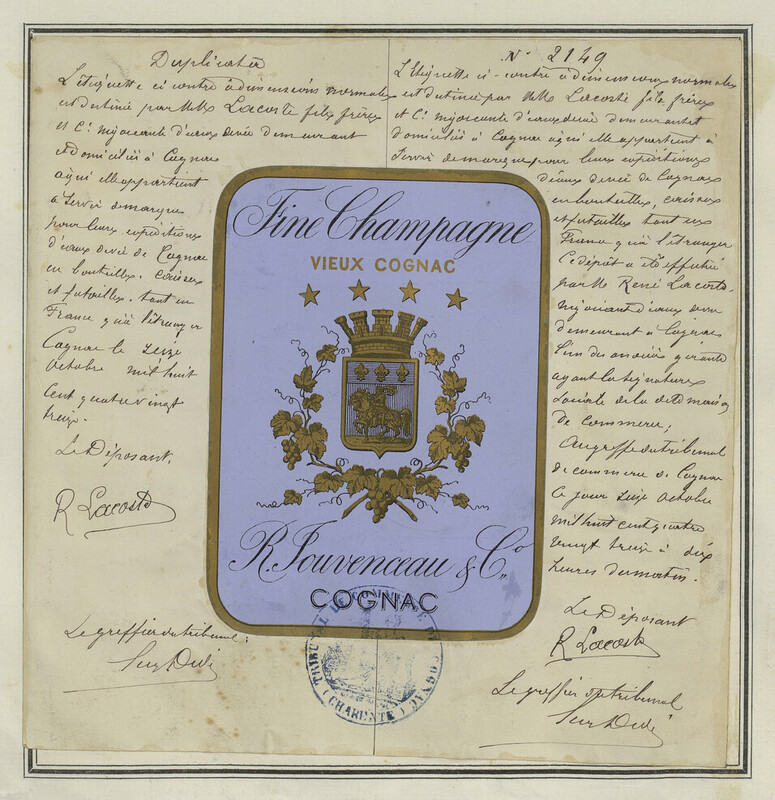 Duplicata
L'étiquette ci contre à dimensions normales
est destiné par MM. Lacoste fils frères
et Cie négociants d'eaux de vie demeurant
et domiciliés à Cognac
à qui elle appartient
à servir de marque
pour leurs expéditions
d'eaux de vie de Cognac
en bouteilles, caisses
et futailles, tant en
France qu'à l'étranger
Cognac le seize
octobre mil huit
cent quatre vingt
treize.
Le Déposant,
R Lacoste
Le greffier du tribunal:
No 2149
L'Etiquette ci-contre à dimensions normales
est destiné par MM. Lacoste fils frères
et Cie négociants d'eaux de vie demeurant et
domiciliés à Cognac à qui elle appartient à
servir de marque pour leurs expéditions
d'eaux de vie de Cognac
en bouteilles, caisses
et futailles tant en
France qu'à l'étranger
Ce dépôt a été effectué
par M. René Lacoste,
négociant d'eaux de vie
demeurant à Cognac
l'un des associés gérants
ayant la signature
sociale de la dite maison
de commerce;
Au greffe du tribunal
de commerce de Cognac
le jour seize octobre
mil huit cent quatre
vingt treize à dix
heures du matin.
Le Déposant
R Lacoste
Le greffier du tribunal
Fine Champagne
VIEUX COGNAC
R. Jouvenceau & Co.
COGNAC
TRIBUNAL DE COMMERCE DE COGNAC
(CHARENTE)